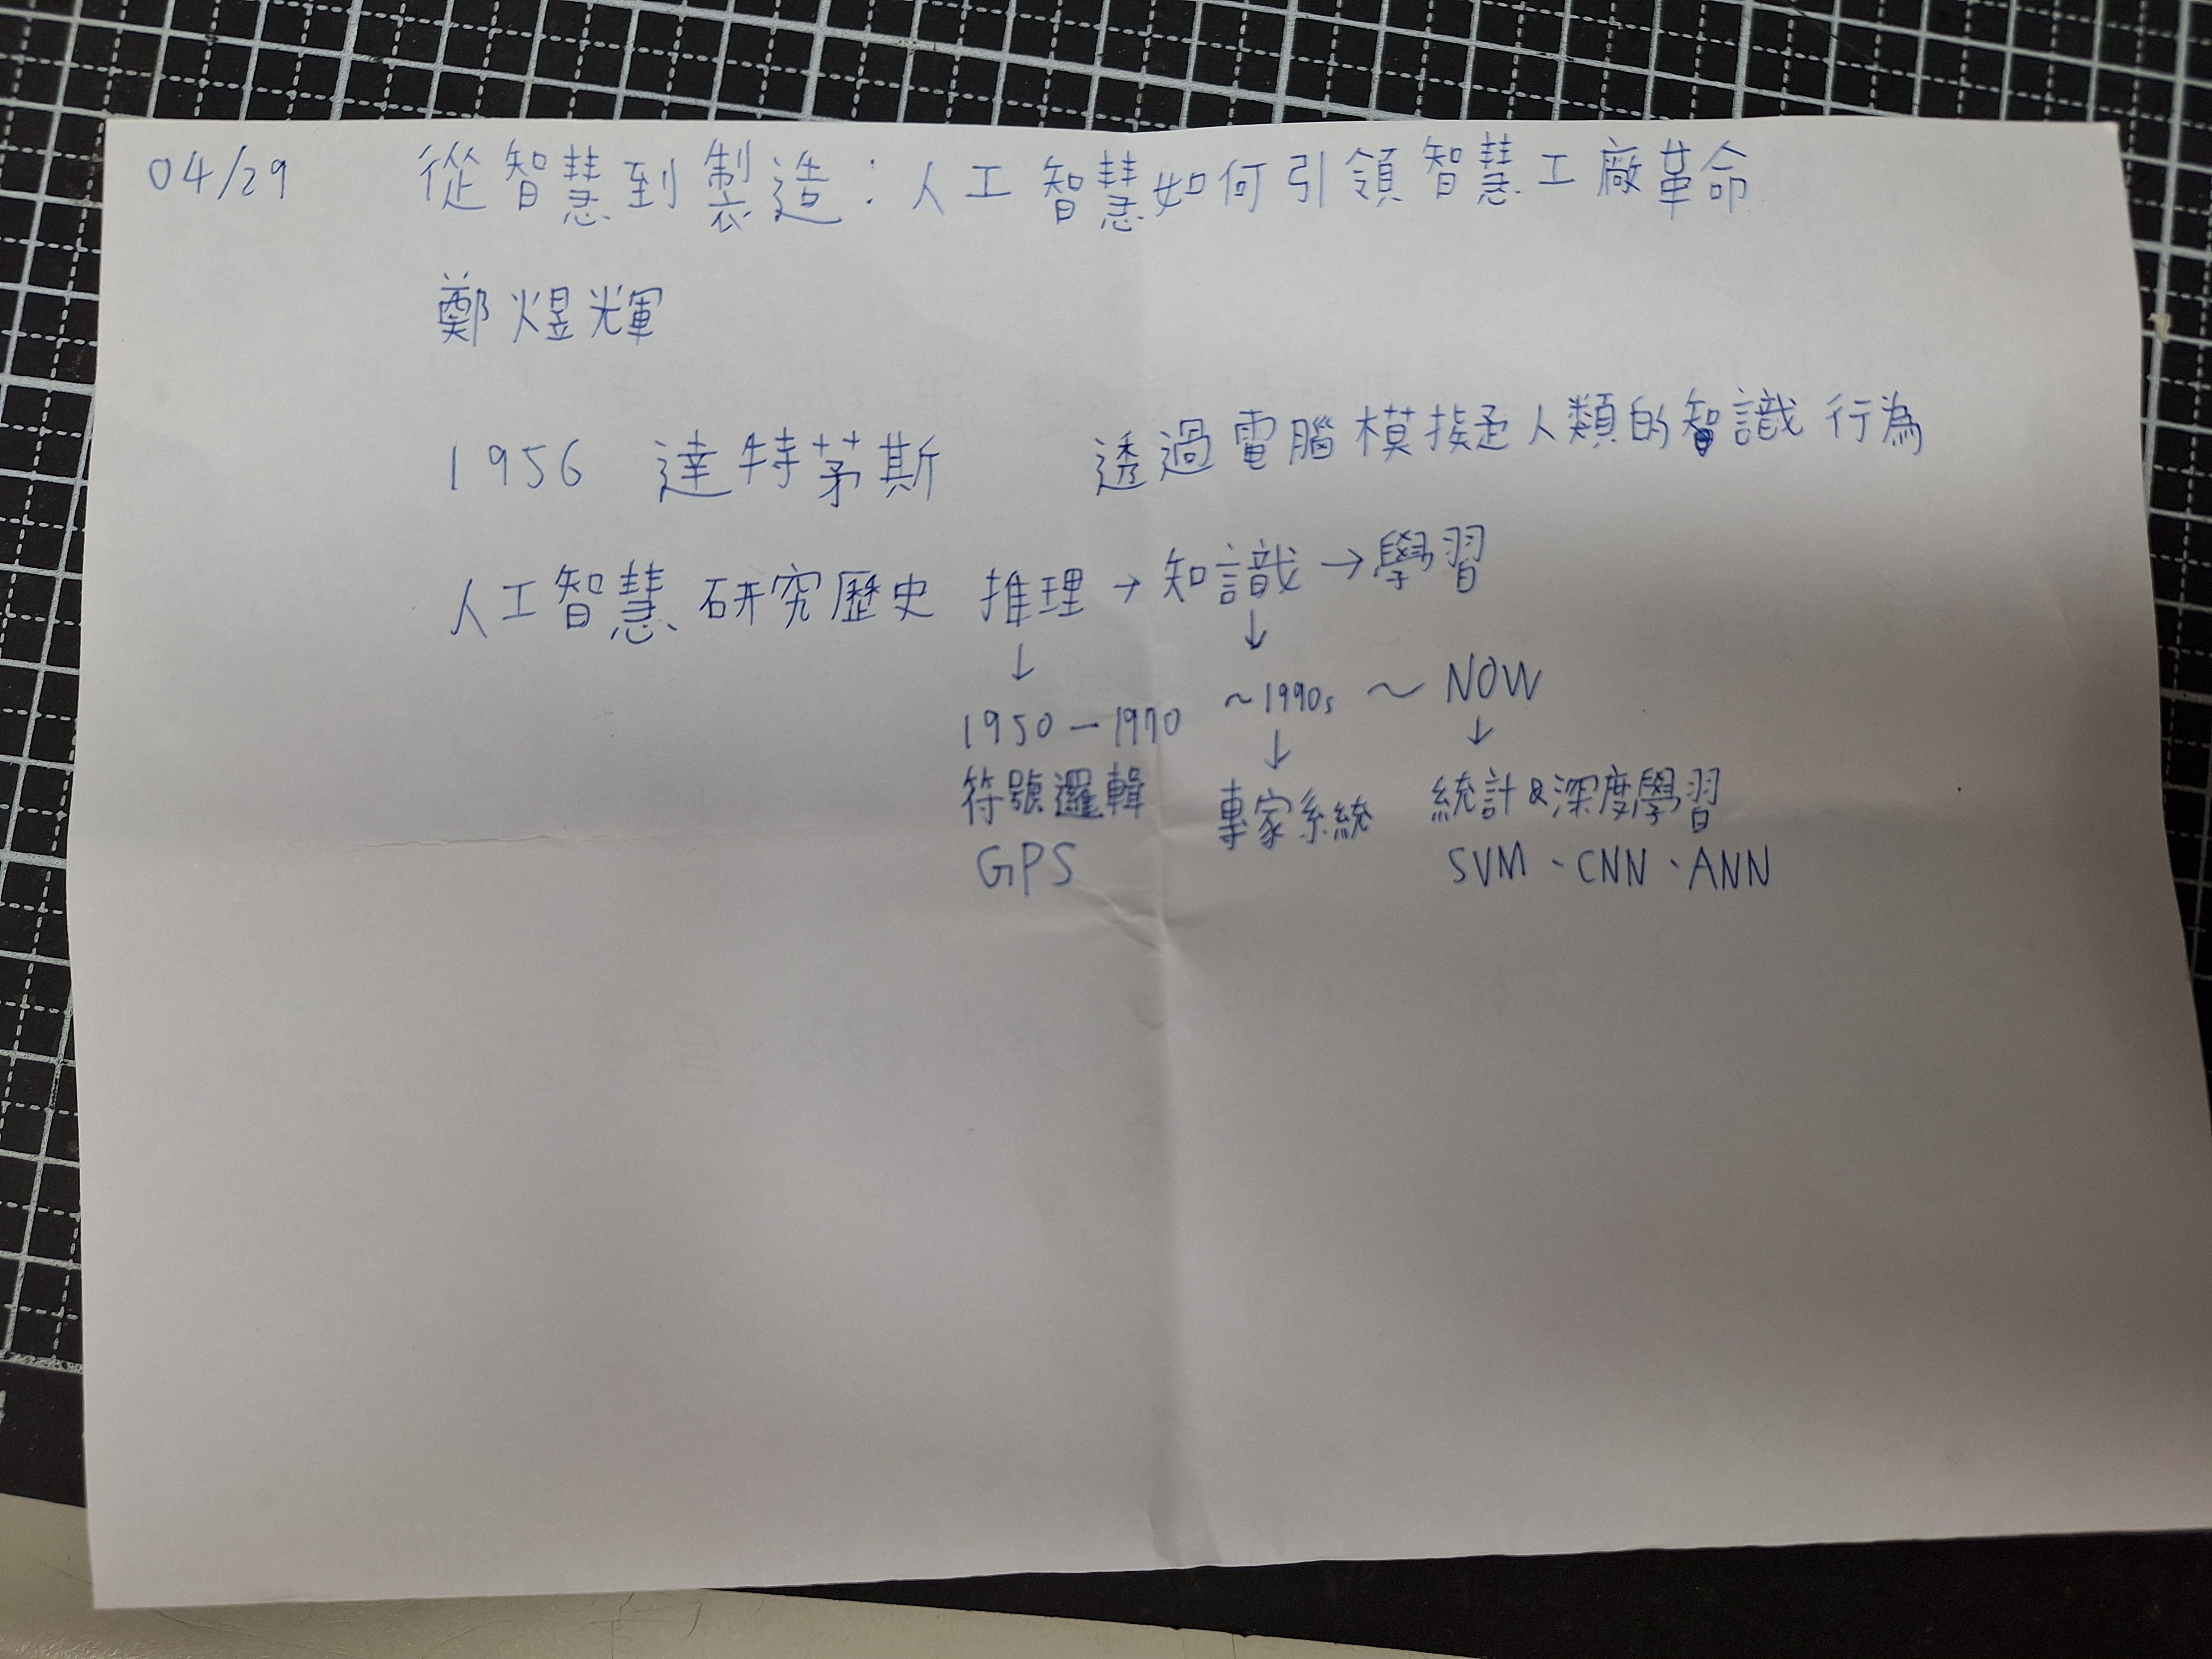 04/29 從智慧到製造：人工智慧如何引領智慧工廠革命
鄭煜輝
1956 達特茅斯 透過電腦模擬人類的智識行為
人工智慧研究歷史 推理→知識→學習
↓ ↓
1950－1970 ～1990s ～NOW
↓ ↓
符號邏輯 專家系統 統計&深度學習
GPS SVM、CNN、ANN